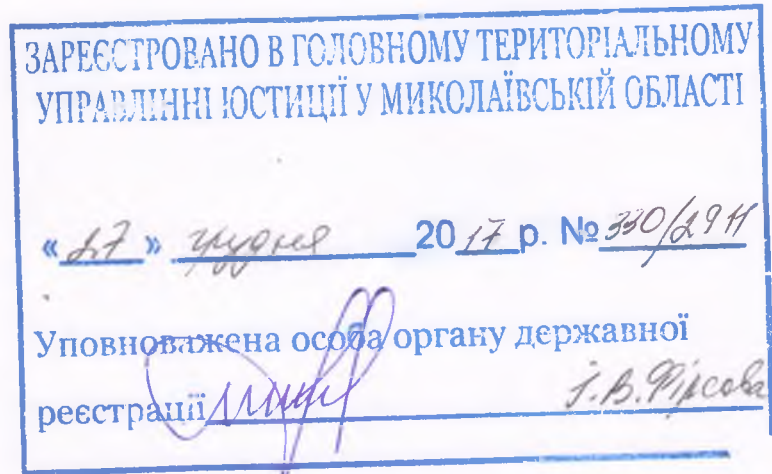 ЗАРЕЄСТРОВАНО В ГОЛОВНОМУ ТЕРИТОРІАЛЬНОМУ
УПРАВЛІННІ ЮСТИЦІЇ У МИКОЛАЇВСЬКІЙ ОБЛАСТІ
«27» грудня 2017 р. № 330/2911
Уповноважена особа органу державної
реєстрації І.В. Фірсова